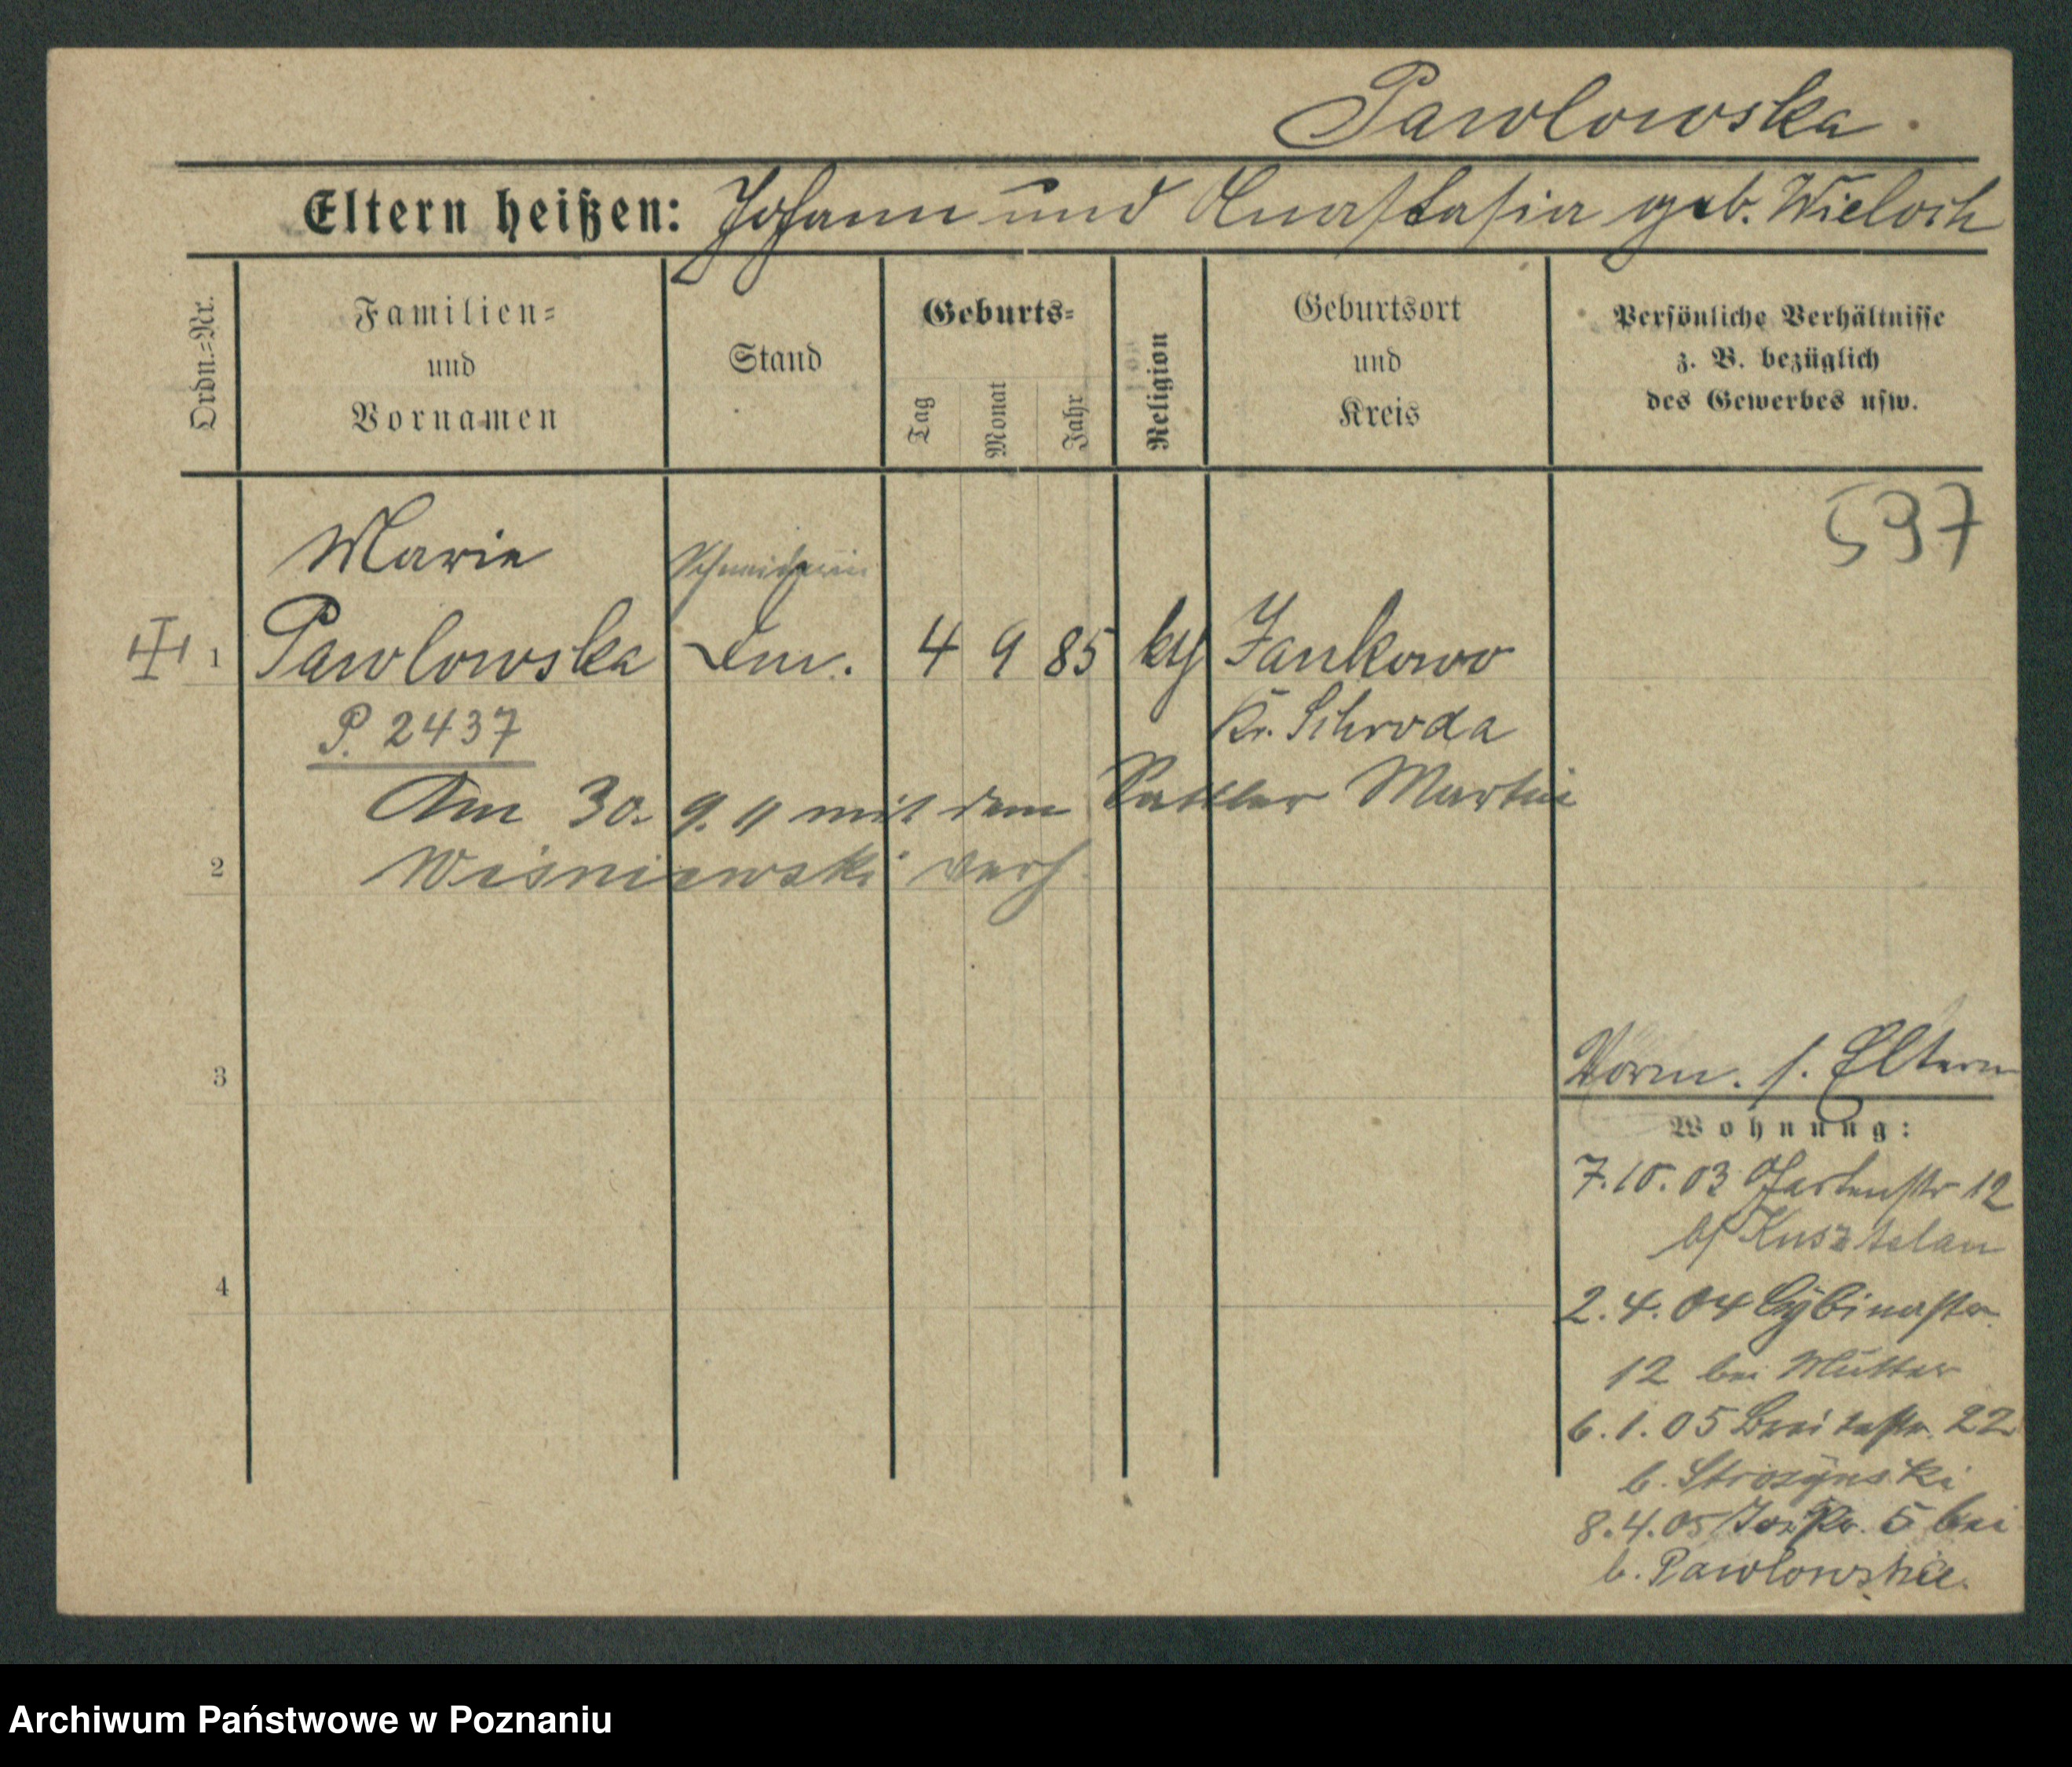 Pawlowska.
Eltern heißen: Johann und Anastasia geb. Wieloch
Ordn.=Nr.
Familien=
und
Vornamen
Stand
Geburts=
Tag
Monat
Jahr
Religion
Geburtsort
und
Kreis
Persönliche Verhältnisse
z. B. bezüglich
des Gewerbes usw.
597
Marie
Schneiderin
1 Pawlowska 4 9 85 kth Jankowo
P. 2437
Kr. Schroda
Am 30. 9. 11 mit dem Sattler Martin
2 Wisniewski verh.
3
4
Vorm. s. Eltern
Wohnung:
7.10.03 Gartenstr 12
bei Kusztelan
2.4.04 Cybinastr.
12 bei Mutter
6.1.05 Breitestr. 22
b. Strozynski
8.4.05 5 bei
b. Pawlowska.
Archiwum Państwowe w Poznaniu